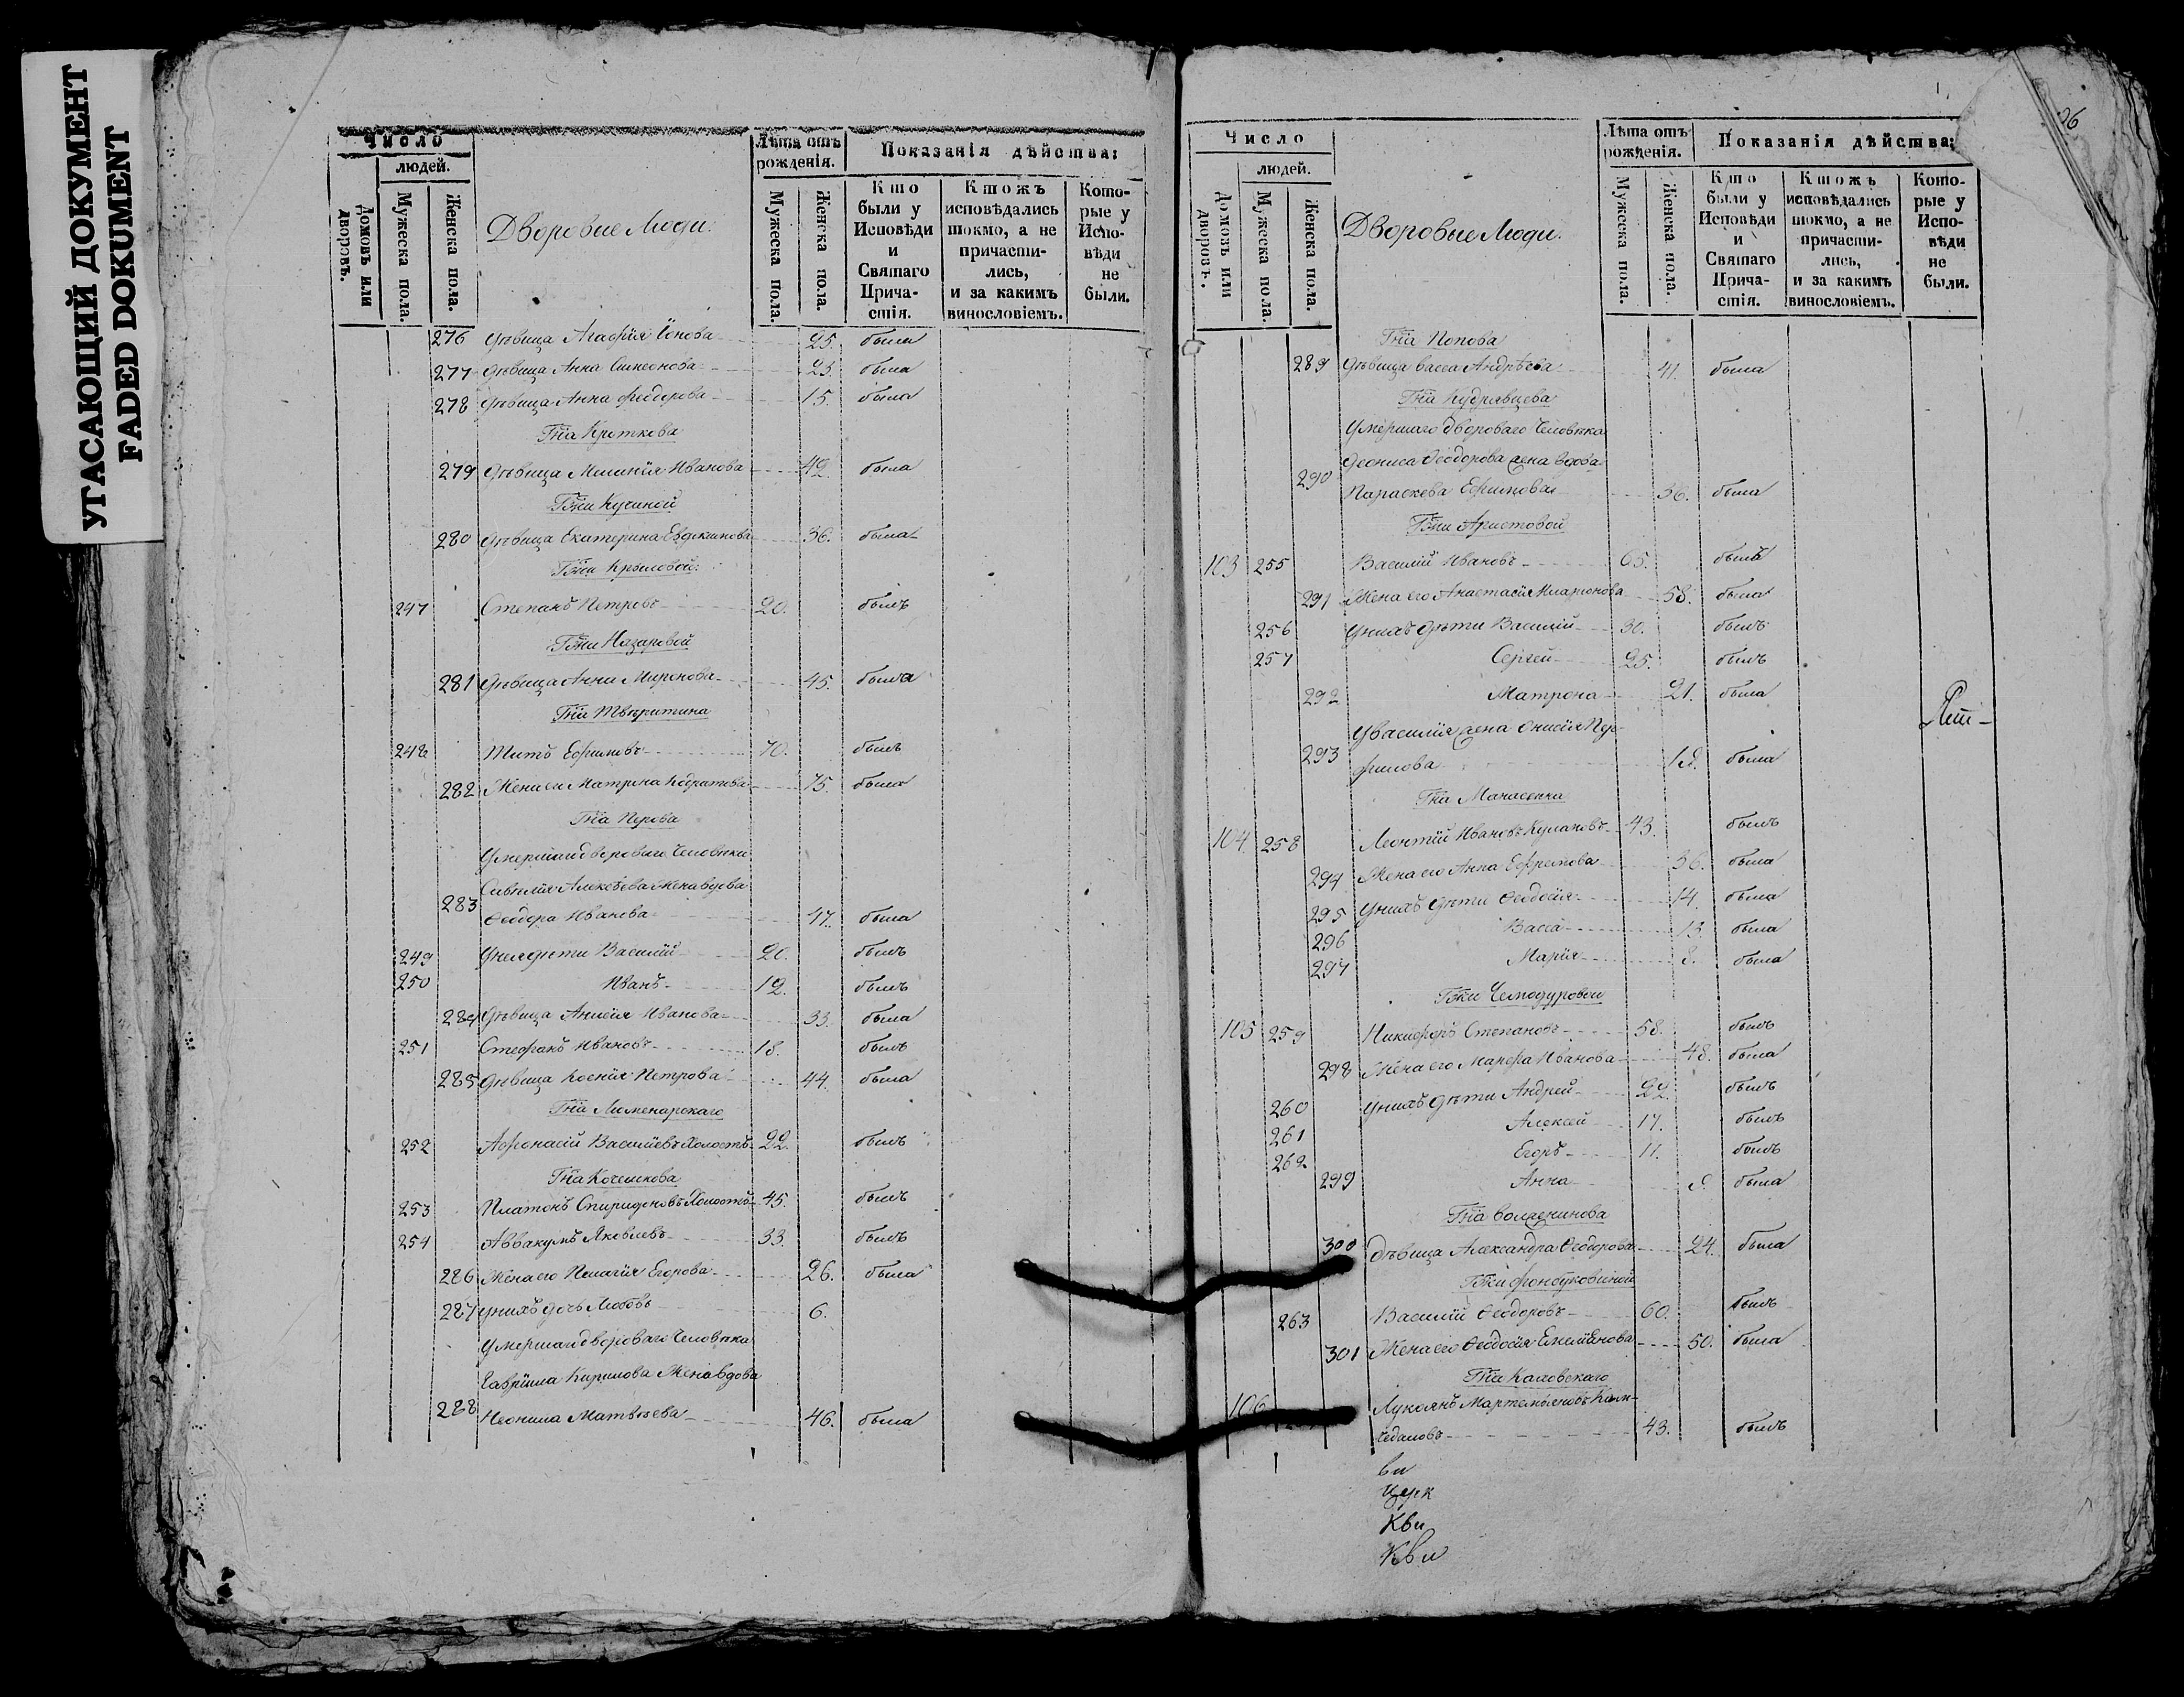 УГАСАЮЩИЙ ДОКУМЕНТ
FADED DOKUMENT
Число
людей.
Домовъ или дворовъ.
Мужеска пола.
Женска пола.
Дворовые Люди.
Лѣта отъ рожденія.
Мужеска пола.
Женска пола.
Показанія дѣйства:
Кто были у Исповѣди и Святаго Причастія.
Ктожъ исповѣдались токмо, а не причастились, и за какимъ винословіемъ.
Которые у Исповѣди не были.
276 Дѣвица Агафія Іонова 25. была
277 Дѣвица Анна Симеонова 23. была
278 Дѣвица Анна Феодорова 15. была
Гна Кроткова
279 Дѣвица Миланія Иванова 49. была
Гжи Кусиной
280 Дѣвица Екатерина Евдокимова 36. была
Гжи Крыловой
247 Степанъ Петровъ 20. былъ
Гжи Назаровой
281 Дѣвица Анна Миронова 45. была
Гна Тверитина
248 Титъ Ефимовъ 70. былъ
282 Жена ег Матрона Кодратова 75. была
Гна Перова
Умершаго двороваго Человѣка
283 Савелія Алексѣева Жена вдова
Феодора Иванова 47. была
249 У нея дѣти Василій 20. былъ
250 Иванъ 12. былъ
284 Дѣвица Анисія Иванова 33. была
251 Стефанъ Ивановъ 18. былъ
285 Дѣвица Ксенія Петрова 44. была
Гна
252 Афонасій Василіевъ Холостъ 22. былъ
Гна Кочешкова
253 Платонъ Спиридоновъ Холостъ 45. былъ
254 Аввакумъ Яковлевъ 33. былъ
286 Жена его Пелагія Егорова 26. была
287 У нихъ дочь Любовь 6.
Умершаго двороваго Человѣка
Гавріила Кирилова Жена вдова
288 Неонила Матвѣева 46. была
26
Число
людей.
Домовъ или дворовъ.
Мужеска пола.
Женска пола.
Дворовые Люди.
Лѣта отъ рожденія.
Мужеска пола.
Женска пола.
Показанія дѣйства:
Кто были у Исповѣди и Святаго Причастія.
Ктожъ исповѣдались токмо, а не причастились, и за какимъ винословіемъ.
Которые у Исповѣди не были.
Гна Попова
289 Дѣвица Васса Андрѣева 41. была
Гна Кудрявцева
Умершаго двороваго Человѣка
290 Феодорова жена вдова
Параскева Ефимова 36. была
Гжи Аристовой
103 255 Василій Ивановъ 65. былъ
291 Жена его Анастасія Иларіонова 58. была
256 У нихъ дѣти Василій 30. былъ
257 Сергей 25. былъ
292 Матрона 21. была
293 У Василія жена Анисія Пор-
филова 18. была
Гна Манасеина
104 258 Леонтій Ивановъ 43. былъ
294 Жена его Анна Ефремова 36. была
295 У нихъ дѣти Феодосія 14. была
296 Васса 13. была
297 Марія 8. была
Гжи Чемодуровой
105 259 Никифоръ Степановъ 58. былъ
298 Жена его Марфа Иванова 48. была
260 У нихъ дѣти Андрей 22. былъ
261 Алексей 17. былъ
262 Егоръ 11. былъ
299 Анна была
Гна Волженинова
300 Дѣвица Александра Феодорова 24. была
Гжи
263 Василій Феодоровъ 60. былъ
301 Жена его Феодосія Емиліянова 50. была
Гна Каховскаго
106 Лукоянъ Мартемьяновъ
43. былъ
ви
Церк
Кви
Кви